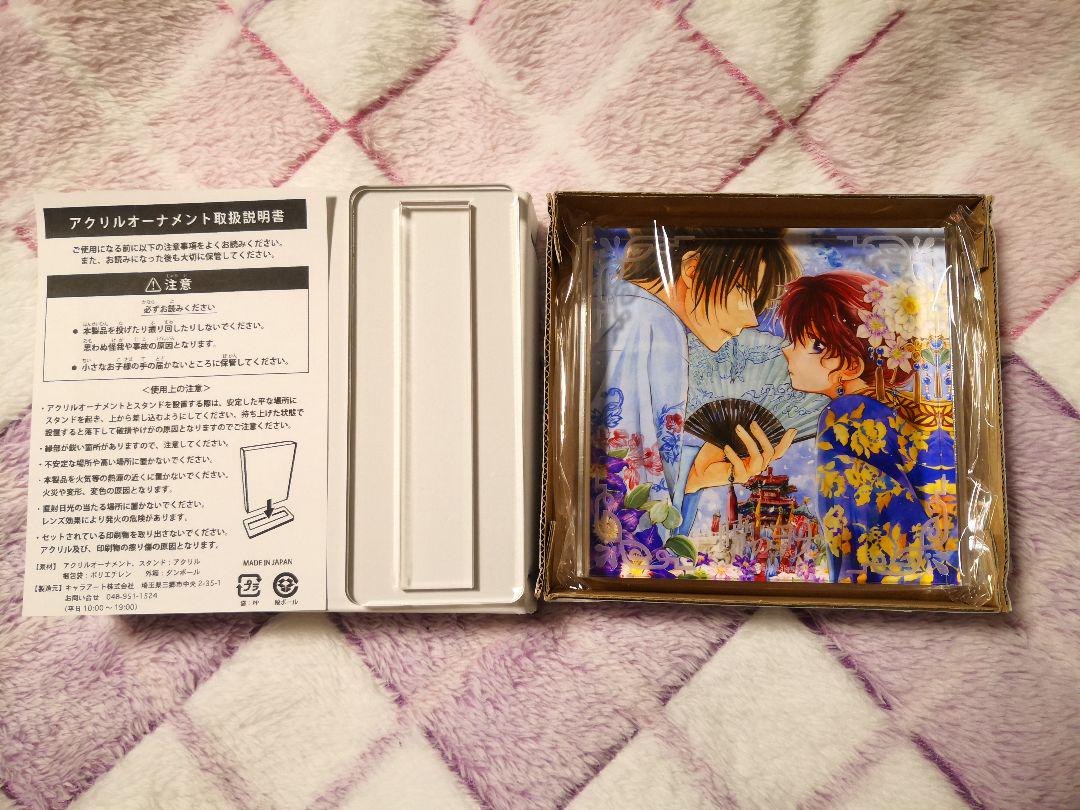 アクリルオーナメント取扱説明書
ご使用になる前に以下の注意事項をよくお読みください。
また、お読みになった後も大切に保管してください。
注意
必ずお読みください
● 本製品を投げたり振り回したりしないでください。
思わぬ怪我や事故の原因となります。
● 小さなお子様の手の届かないところに保管してください。
＜使用上の注意＞
・アクリルオーナメントとスタンドを設置する際は、安定した平な場所に
スタンドを起き、上から差し込むようにしてください。持ち上げた状態で
設置すると落下して破損やけがの原因となりますのでご注意ください。
・縁部が鋭い箇所がありますので、注意してください。
・不安定な場所や高い場所に置かないでください。
・本製品を火気等の熱源の近くに置かないでください。
火災や変形、変色の原因となります。
・直射日光の当たる場所に置かないでください。
レンズ効果により発火の危険があります。
・セットされている印刷物を取り出さないでください。
アクリル及び、印刷物の擦り傷の原因となります。
【素材】 アクリルオーナメント、スタンド：アクリル
梱包袋：ポリエチレン 外箱：ダンボール
【製造元】キャラアート株式会社 埼玉県三郷市中央 2-35-1
お問い合せ 048-951-1524
(平日 10:00～19:00)
MADE IN JAPAN
プラ
袋：PP
段ボール